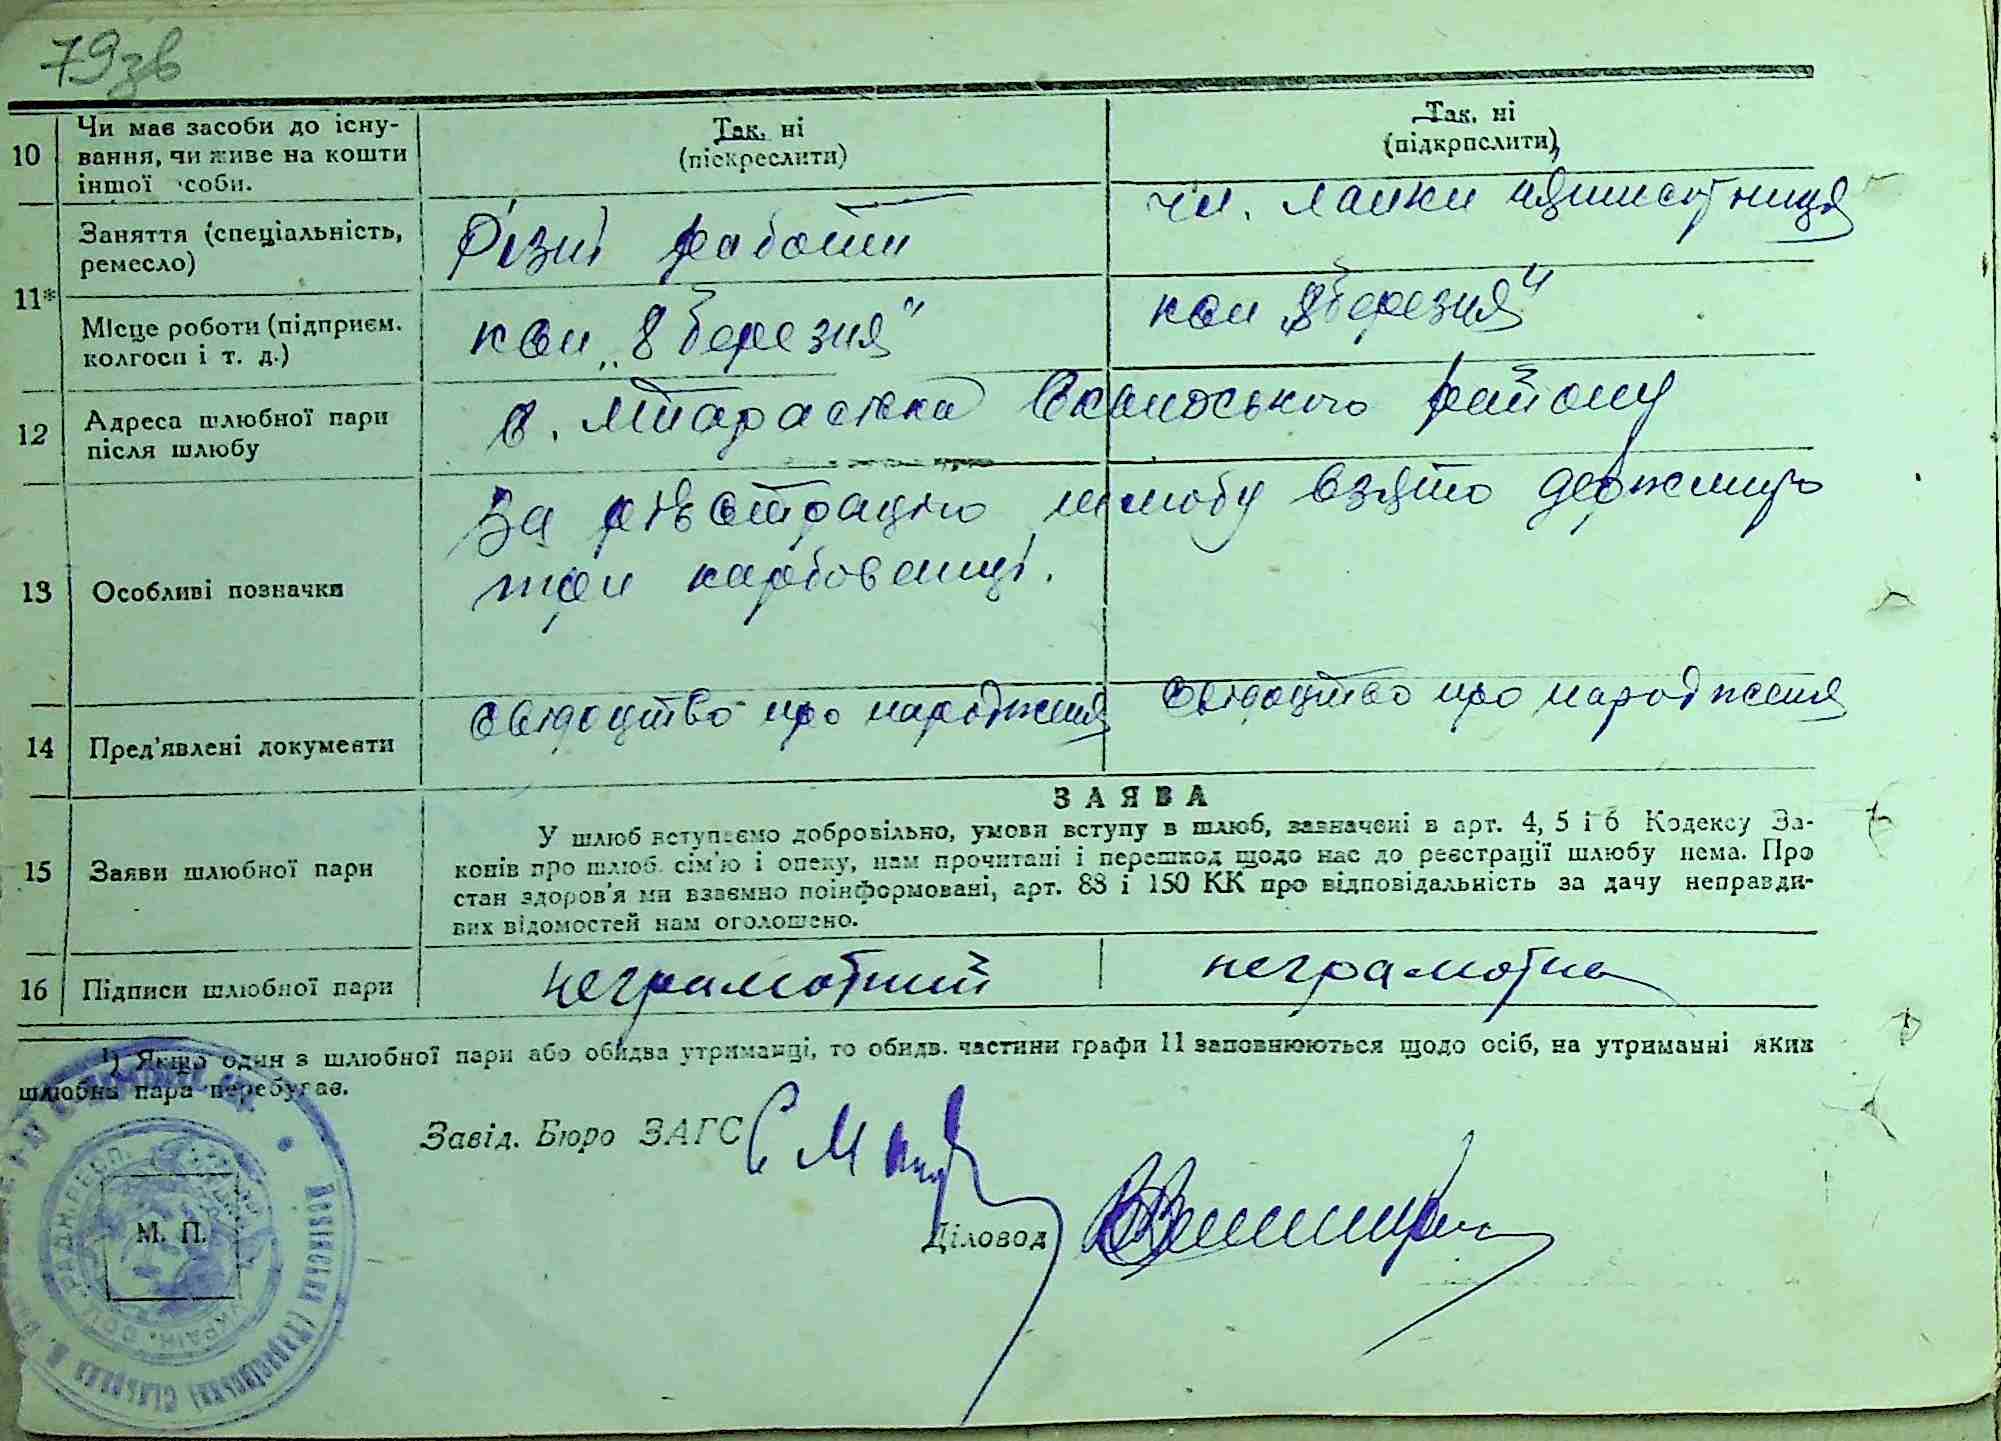 79зв
10 Чи має засоби до існу-
вання, чи живе на кошти
іншої особи.
Так, ні
(піскреслити)
Так, ні
(підкрпслити)
11*
Заняття (спеціальність,
ремесло)
Різні работи
чл. ланки
Місце роботи (підприєм.
колгосп і т. д.)
кол „8 березня"
кол „8 березня"
12 Адреса шлюбної пари
після шлюбу
с. Тарасівка району
13 Особливі позначки
За реєстрацію шлюбу взято держмито
три карбованці.
14 Пред'явлені документи
свідоцтво про народження
свідоцтво про народження
15 Заяви шлюбної пари
ЗАЯВА
У шлюб вступаємо добровільно, умови вступу в шлюб, зазначені в арт. 4, 5 і 6 Кодексу За-
конів про шлюб, сім'ю і опеку, нам прочитані і перешкод щодо нас до реєстрації шлюбу нема. Про
стан здоров'я ми взаємно поінформовані, арт. 88 і 150 КК про відповідальність за дачу неправди-
вих відомостей нам оголошено.
16 Підписи шлюбної пари
неграмотний
неграмотна
¹) Якщо один з шлюбної пари або обидва утриманці, то обидв. частини графи 11 заповнюються щодо осіб, на утриманні яких
шлюбна пара перебуває.
Завід. Бюро ЗАГС
Діловод
М. П.